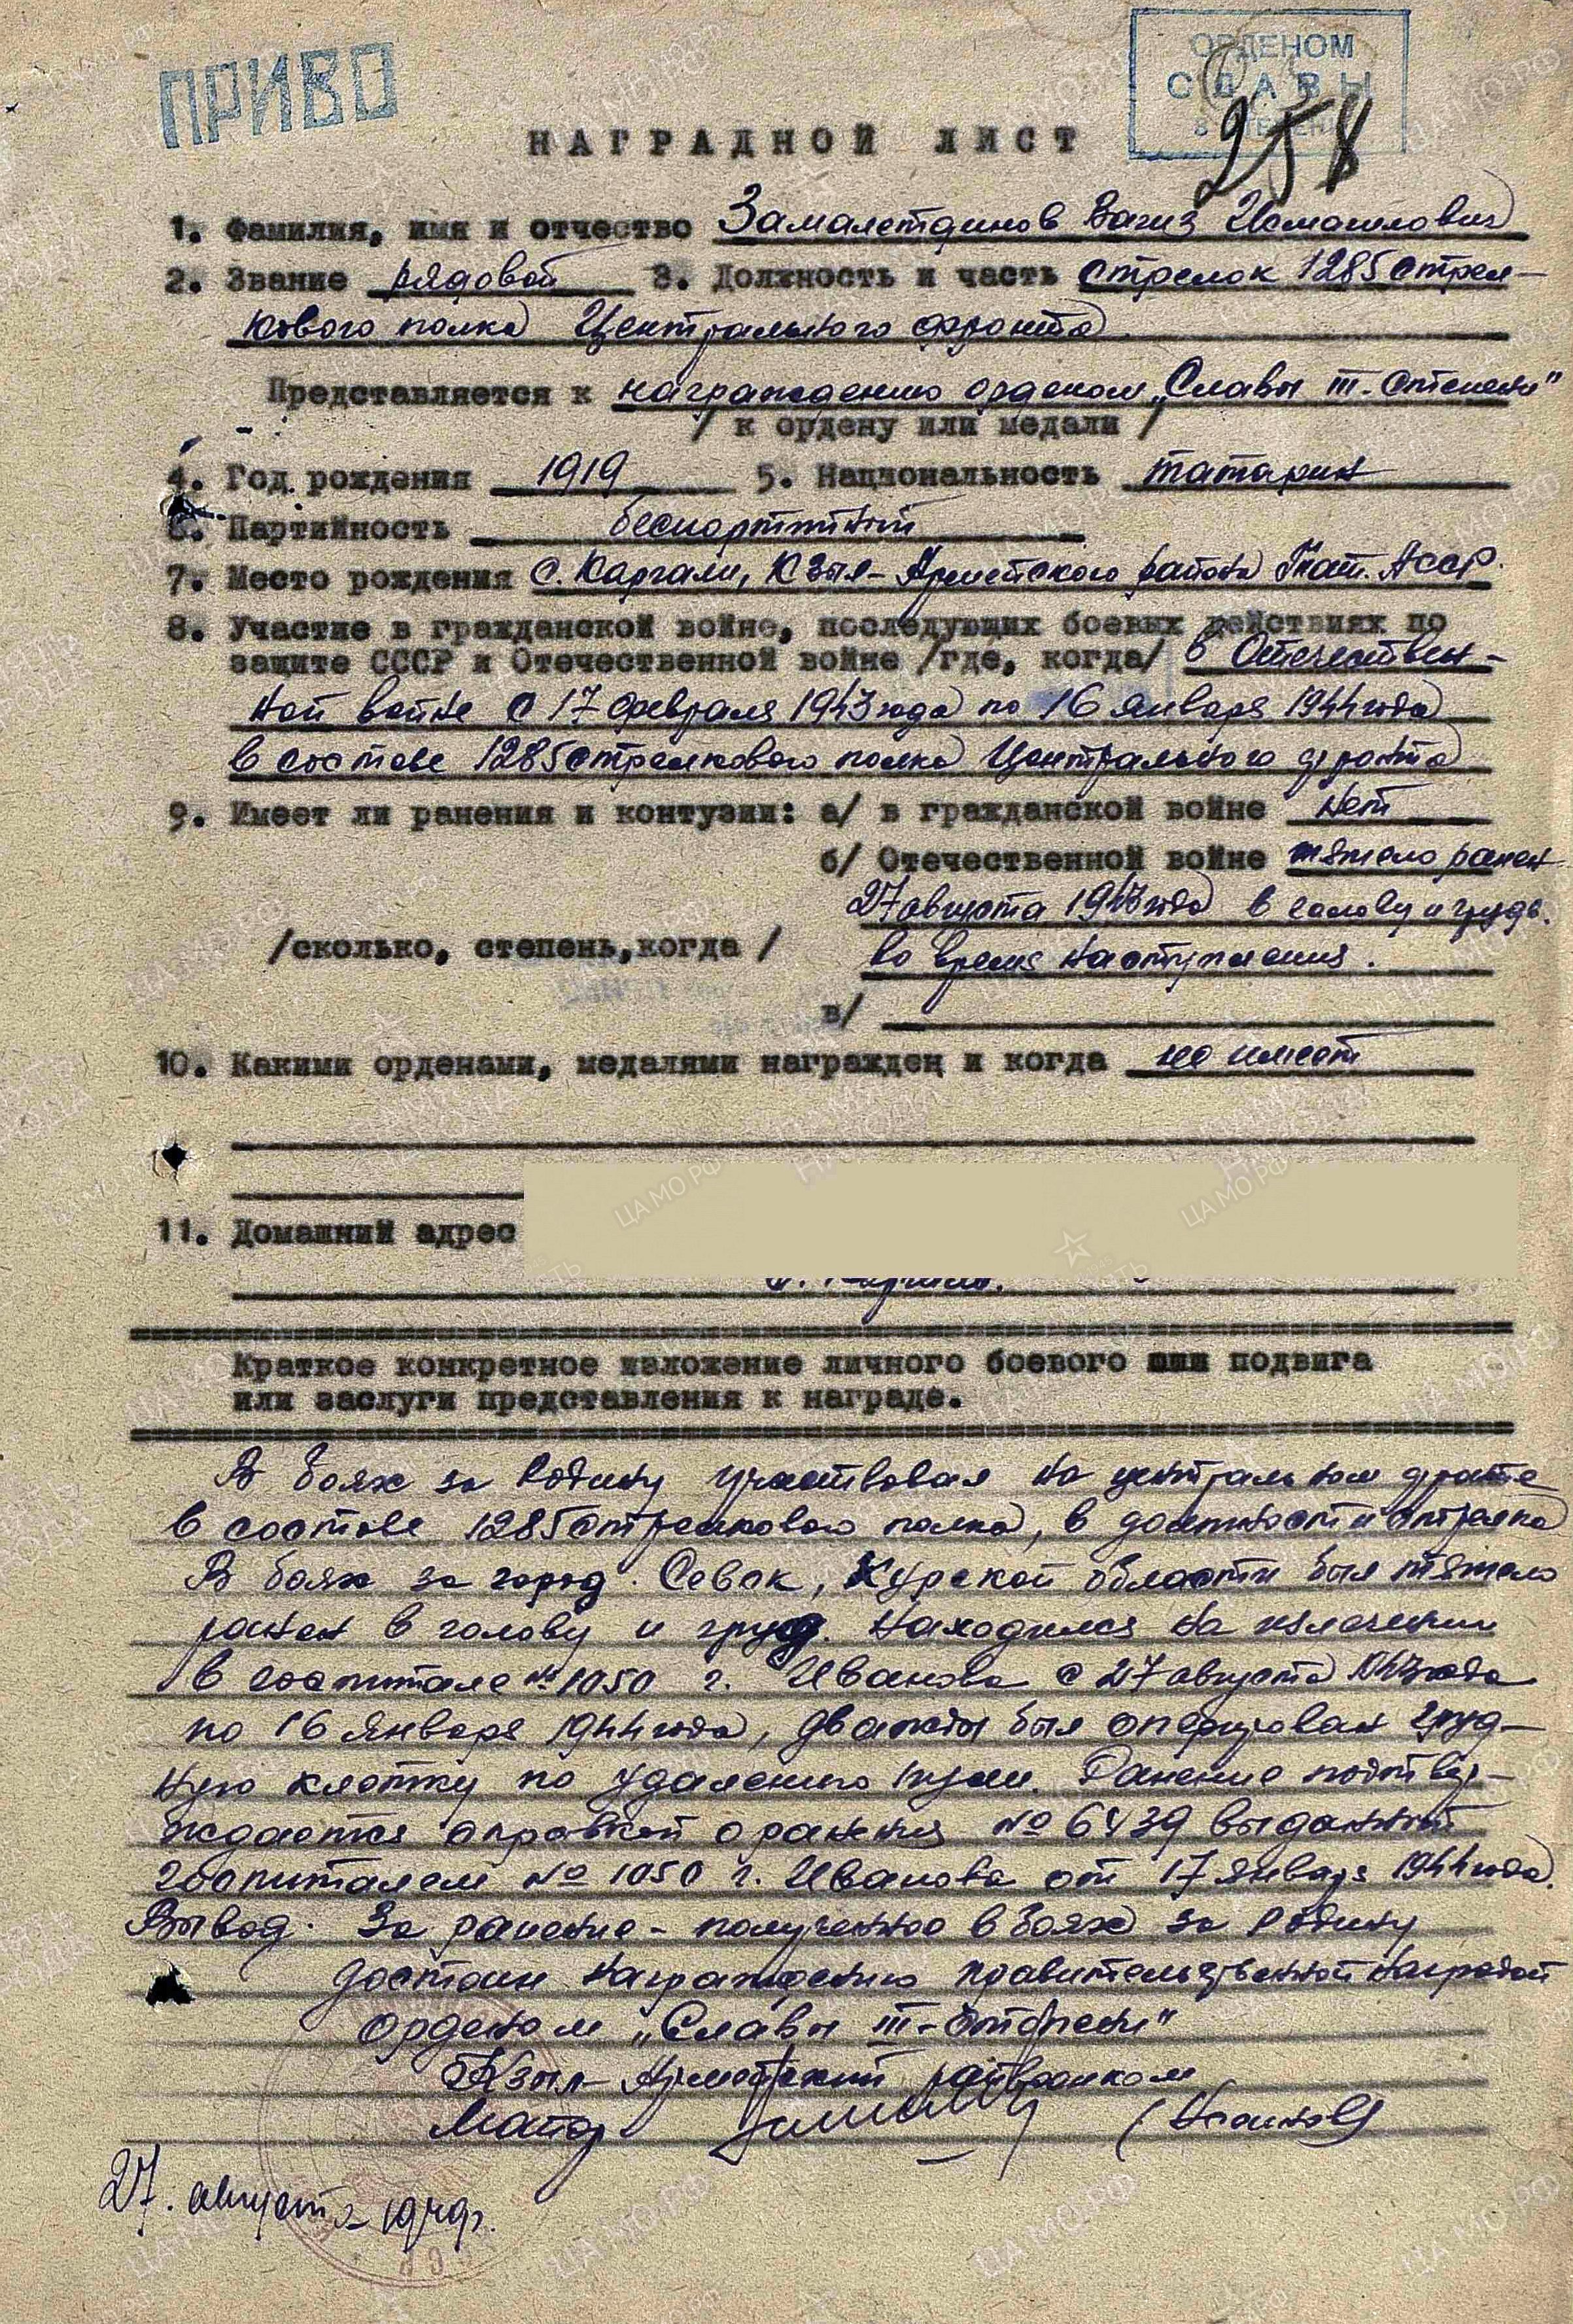 ПРИВО
ОРДЕНОМ
СЛАВЫ
3 СТЕПЕНИ
258
НАГРАДНОЙ ЛИСТ
1. Фамилия, имя и отчество Замалетдинов Вагиз Исмагилович
2. Звание рядовой 3. Должность и часть стрелок 1285 стрел-
кового полка Центрального фронта
Представляется к награждению орденом „Славы III-степени"
/ к ордену или медали /
4. Год рождения 1919 5. Национальность татарин
6. Партийность беспартийный
7. Место рождения с. Каргали, Кзыл-Армейского района Тат. АССР.
8. Участие в гражданской войне, последующих боевых действиях по
защите СССР и Отечественной войне /где, когда/ в Отечествен-
ной войне с 17 февраля 1943 года по 16 января 1944 года
в составе 1285 стрелкового полка Центрального фронта
9. Имеет ли ранения и контузии: а/ в гражданской войне нет
б/ Отечественной войне тяжело ранен
27 августа 1943 года в голову и грудь.
/сколько, степень, когда / во время наступления.
в/
10. Какими орденами, медалями награжден и когда не имеет
11. Домашний адрес
Краткое конкретное изложение личного боевого подвига
или заслуги представления к награде.
В боях за Родину участвовал на центральном фронте
в составе 1285 стрелкового полка, в должности стрелка
В боях за город. Севск, Курской области был тяжело
ранен в голову и груд. Находился на излечении
в госпитале № 1050 г. Иванова с 27 августа 1943 года
по 16 января 1944 года, дважды был оперирован груд-
ную клетку по удалению пули. Ранение подтвер-
ждается справкой о ранения № 6439 выданный
госпиталем № 1050 г. Иванова от 17 января 1944 года.
Вывод. За ранение - полученное в боях за Родину
достоин награждению правительственной наградой
орденом „Славы III-степени"
Кзыл-Армейский райвоенком
Майор
27. августа 1949г.